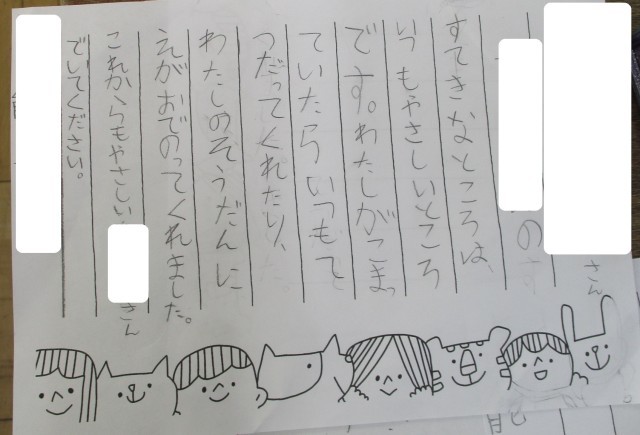 さん
の
すてきなところは、
いつもやさしいところ
です。わたしがこまっ
ていたらいつもて
つだってくれたり、
わたしのそうだんに
えがおでのってくれました。
これからもやさしい さん
でいてください。